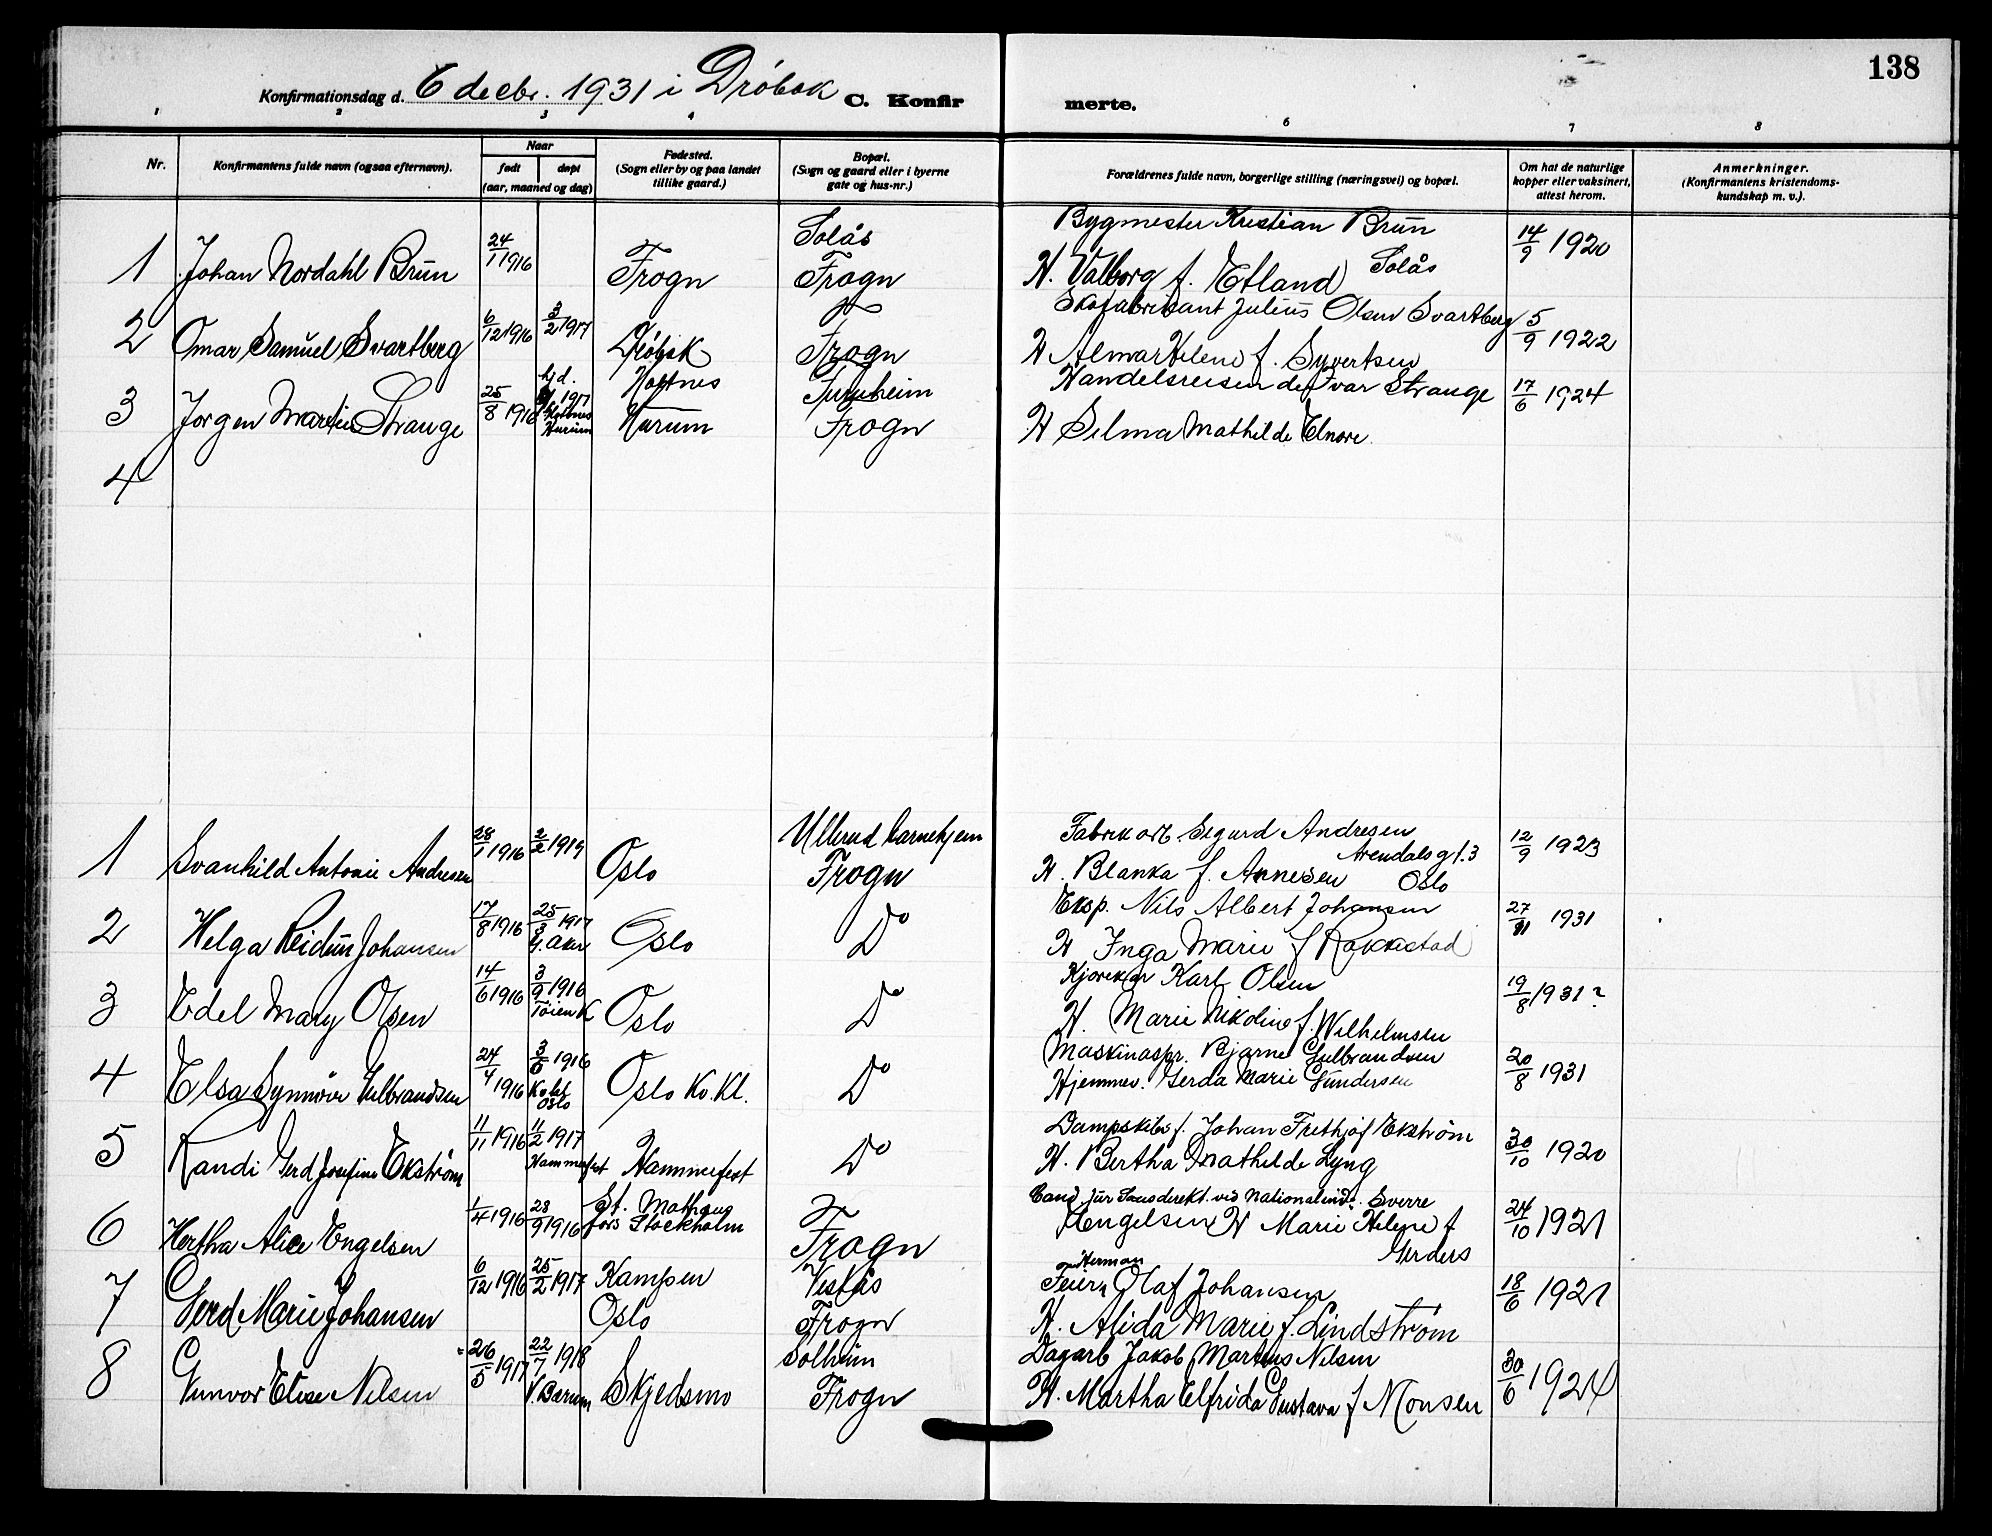 138
Konfirmationsdag d. 6 decbr. 1931 i Drøbak C. Konfirmerte.
1 2 3 4 6 7 8
Nr.
Konfirmantens fulde navn (ogsaa efternavn).
Naar
født døpt
(aar, maaned og dag)
Fødested.
(Sogn eller by og paa landet
tillike gaard.)
Bopæl.
(Sogn og gaard eller i byerne
gate og hus-nr.)
Forældrenes fulde navn, borgerlige stilling (næringsvei) og bopæl.
Om hat de naturlige
kopper eller vaksinert,
attest herom.
Anmerkninger.
(Konfirmantens kristendoms-
kundskap m. v.).
Solås Bygmester Kristian Brun
1 Johan Nordahl Brun 24/1 1916 Frogn Frogn H. Valborg f. Etland Solås 14/9 1920
Skofabrikant Julius Olsen Svartberg
2 Omar Samuel Svartberg 6/12 1916 3/2 1917 Drøbak Frogn H Alma Helene f. Syvertsen 5/9 1922
hjd. Hoftnes Handelsreisende Ivar Strange
3 Jørgen Martin Strange 25/8 1916 1917 Hurum Hurum Frogn H Selma Mathilde Elnore 17/6 1924
4
Ullerud barnehjem Fabrik arb. Sigurd Andresen
1 Svanhild Antonie Andresen 28/1 1916 2/2 1919 Oslo Frogn H. Blanka f. Annesen Arendalsgt. 3 Oslo 12/9 1923
Eksp. Nils Albert Johansen
2 Helga Reidun Johansen 17/8 1916 25/3 1917 G. Aker Oslo Do H Inga Marie f Rakkestad 27/11 1931
Kjørekar Karl Olsen
3 Edel Mary Olsen 14/6 1916 3/9 1916 Tøien K Oslo Do H. Marie Nikoline f. Wilhelmsen 19/8 1931?
Maskinaspr. Bjarne Gulbrandsen
4 Elsa Synnøve Gulbrandsen 24/4 1916 1916 Oslo Oslo Ko. Kl. Do Hjemmev. Gerda Marie Gundersen 20/8 1931
Dampskibsf. Johan Frethjof Ekstrøm
5 Randi Gerd Josefine Ekstrøm 11/11 1916 11/2 1917 Hammerfest Hammerfest Do H. Bertha Mathilde Lyng 30/10 1920
St. Mathæus Cand. jur vid Nationalind. Sverre
6 Hertha Alice Engelsen 1/4 1916 23/9 1916 førs Stockholm Frogn Engelsen H Marie Helene f Gerders 24/10 1921
Herman
7 Gerd Marie Johansen 6/12 1916 25/2 1917 Kampen Oslo Vestås Frogn Feier Olaf Johansen
H. Alida Marie f. Lindstrøm 18/6 1921
Solheim Dagarb Jakob Martius Nilsen
8 Gunvor Elise Nilsen 26/5 1917 22/7 1918 V. Bærum Skjedsmo Frogn H. Martha Elfrida Gustava f Monsen 30/6 1924